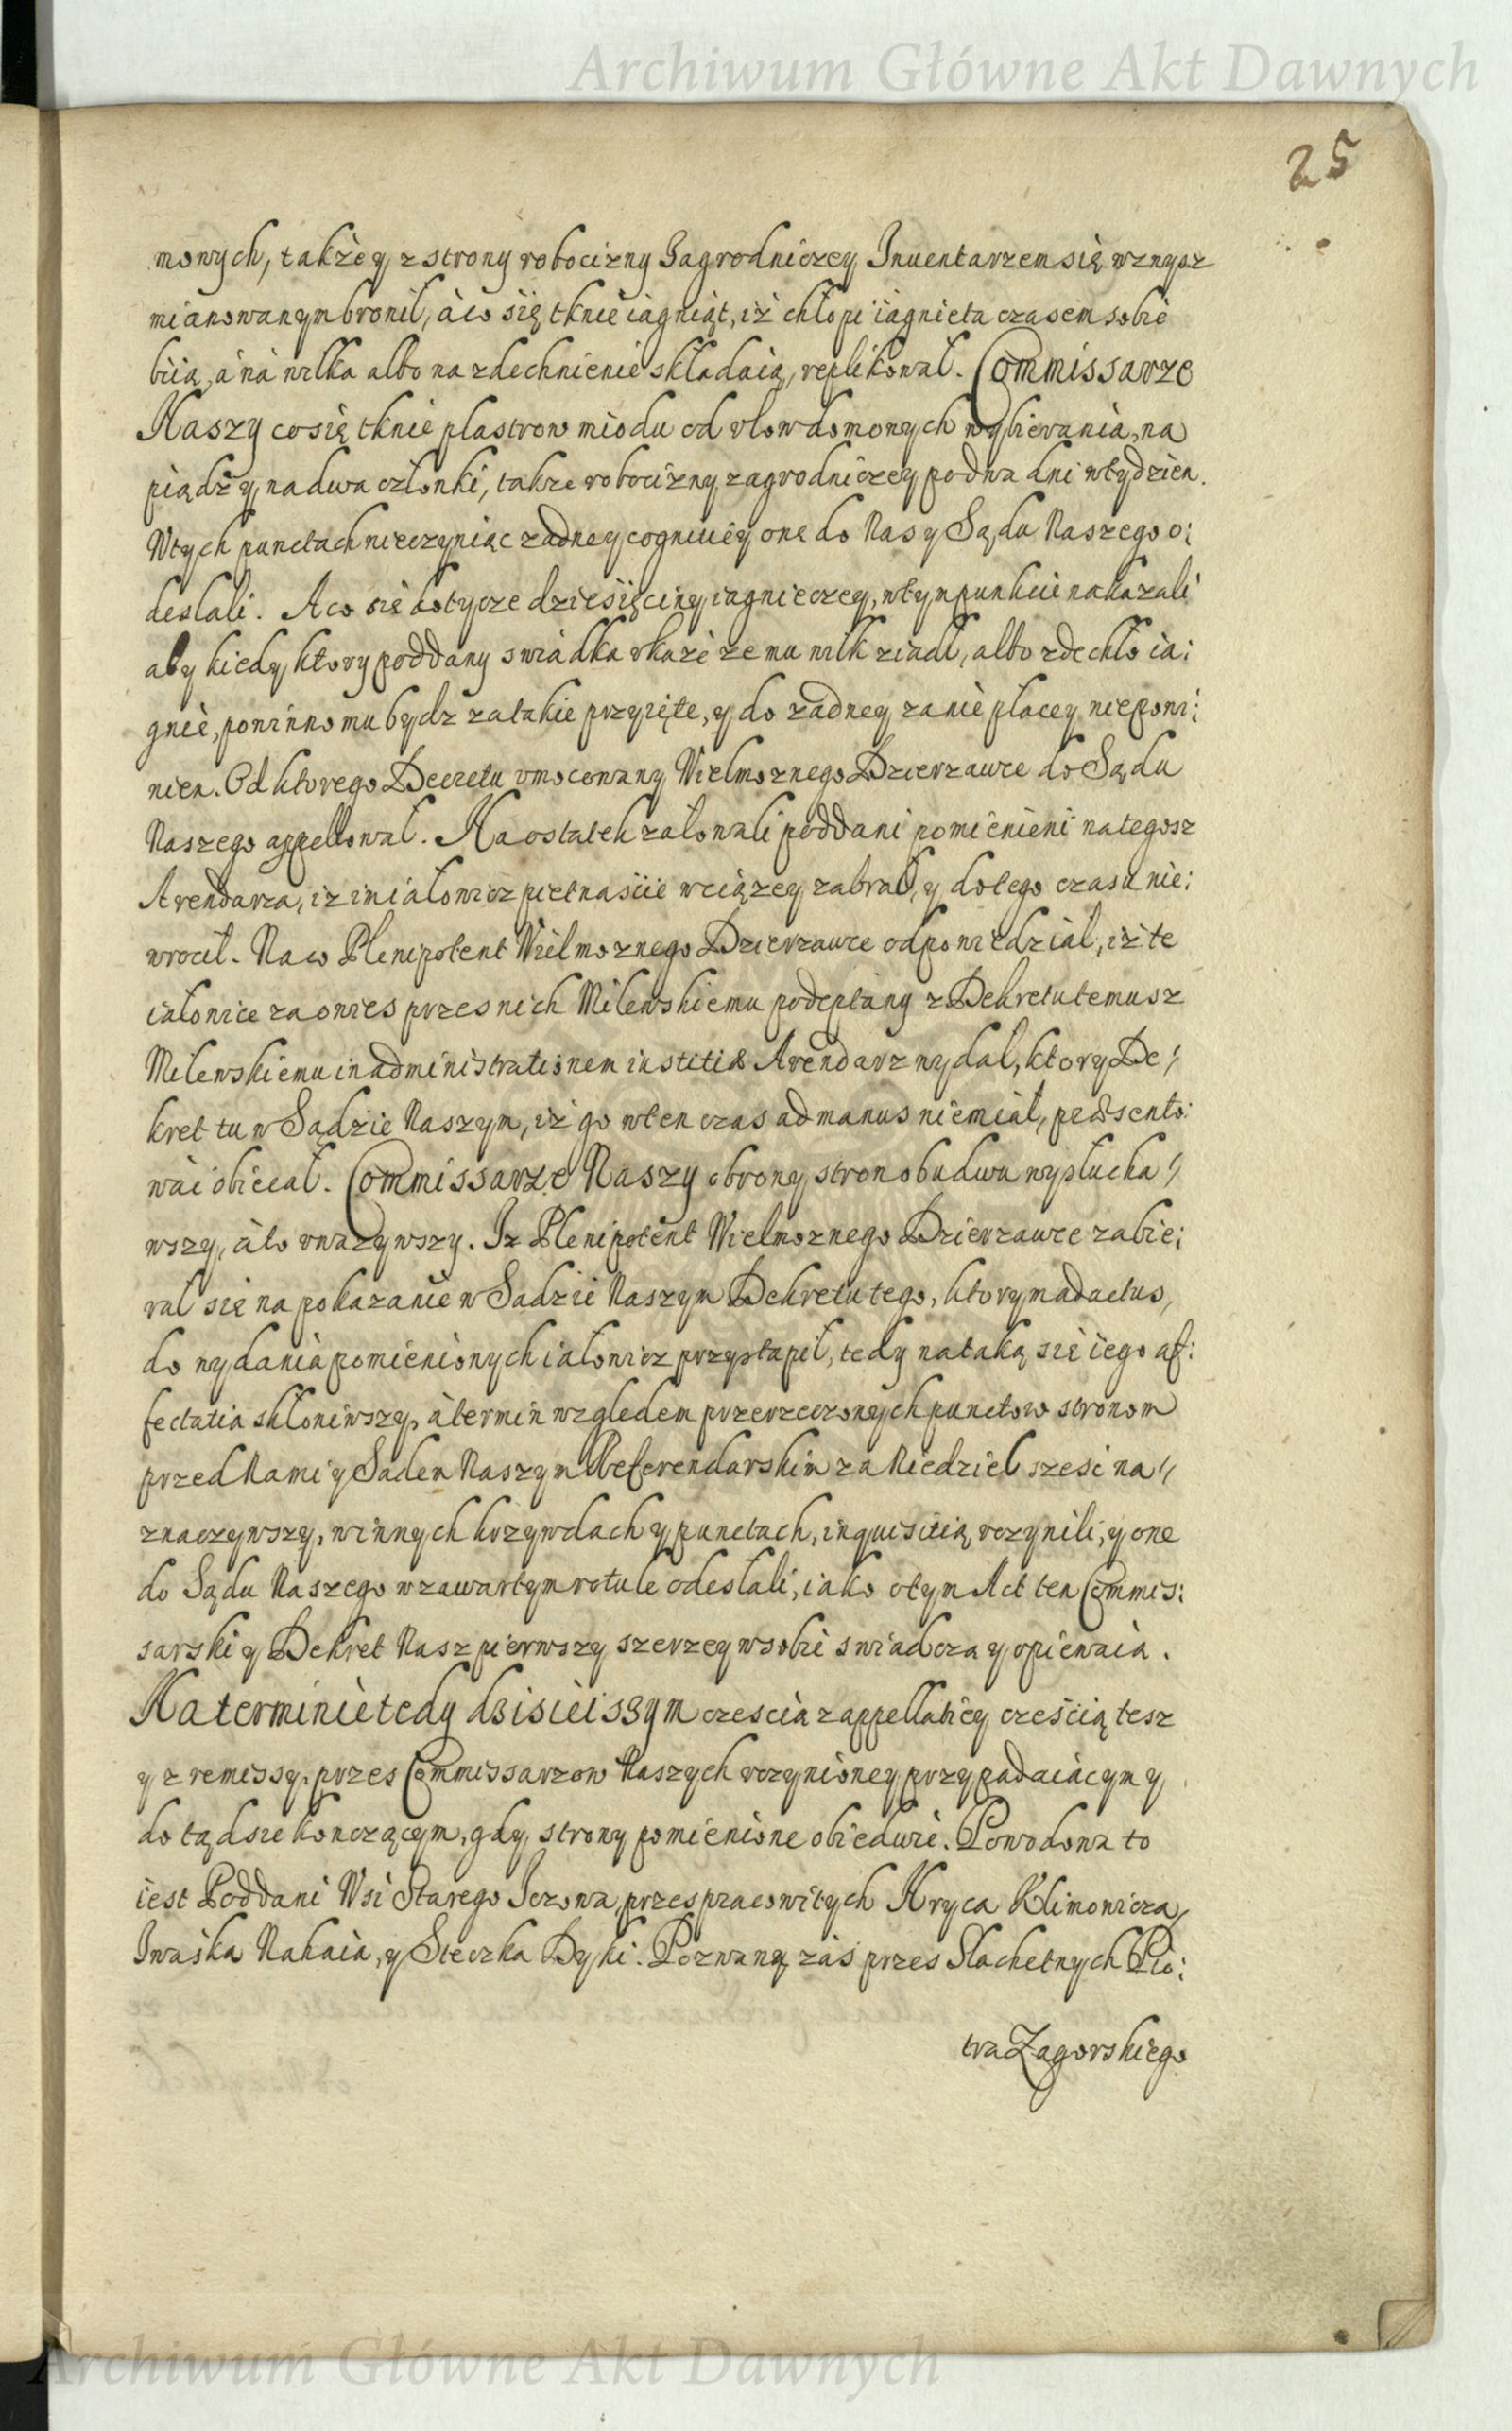 Archiwum Główne Akt Dawnych
25
mowych, także y z strony robocizny Zagrodniczey Inuentarzem się wznysz
mianowanym bronił, à co się tknie iagniąt, iż chłopi iagnieta czasem sobie
biią, à nà wilka albo na zdechnienie składaią, replikował. Commissarze
Naszy co się tknie plastrow miodu od vlow domowych wybierania, na
piądź y na dwa członki, także robocizny zagrodniczey po dwa dni w tydzien.
W tych punctach nie czyniąc żadney cogniciey one do Nas y Sądu Naszego o:
desłali. A co się dotycze dziesięciny iagnieczey, w tym punkcie nakazali
aby kiedy ktory poddany swiadka vkaże że mu wilk ziadł, albo zdechło ia:
gnie, powinno mu bydz za takie przyięte, y do żadney zanie płacey niepowi:
nien. Od ktorego Decretu vmocowany Wielmoznego Dzierzawce do Sądu
Naszego appellował. Na ostatek załowali poddani pomienieni na tegosz
Arendarza, iz im iałowicz pietnascie w ciążey zabrał, y do tego czasu nie:
wrocił. Na co Plenipotent Wielmoznego Dzierzawce odpowiedział, iż te
iałowice za owies przes nich Milewskiemu podeptany z Dekretu temusz
Milewskiemu in administrationem iustitiæ Arendarz wydał, ktory De:
kret tu w Sądzie Naszym, iż go w ten czas ad manus niemiał, præsento:
wać obiecał. Commissarze Naszy obrony stron obudwu wysłucha:
wszy, à to vwazywszy. Iz Plenipotent Wielmoznego Dzierzawce zabie:
rał się na pokazanie w Sadzie Naszym Dekretu tego, ktorym adactus,
do wydania pomienionych iałowicz przystąpił, tedy na taką się iego af:
fectatia skłoniwszy, à termin względem przerzeczonych punctow stronom
przed Nami y Sądem Naszym Referendarskim za Niedziel szesc na:
znaczywszy, w innych krzywdach y punctach, inquisitią vczynili, y one
do Sądu Naszego w zawartym rotule odesłali, iako o tym Act ten Commis:
sarski y Dekret Nasz pierwszy szerzey w sobie swiadcza y opiewaia.
Na terminie tedy dzisieiszym czescia z appellatiey cześcią tesz
y z remissy, przes Commissarzow Naszych vczynioney przypadaiącym y
dotąd sie konczącym, gdy strony pomienione obiedwie. Powodowa to
iest Poddani Wsi Starego Iczowa, przes pracowitych Hryca Klimowicza,
Iwaśka Nakaia, y Steczka Dyki. Pozwaną zaś przes Slachetnych Pio:
tra Zagorskiego
Archiwum Główne Akt Dawnych